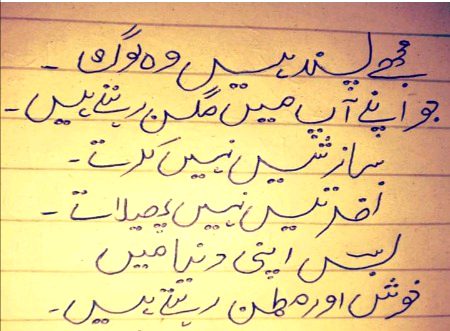 مجھے پسند ہیں وہ لوگ ۔
جو اپنے آپ میں مگن رہتے ہیں۔
سازشیں نہیں کرتے۔
نفرتیں نہیں پھیلاتے۔
بس اپنی دنیا میں
خوش اور مطمن رہتے ہیں۔